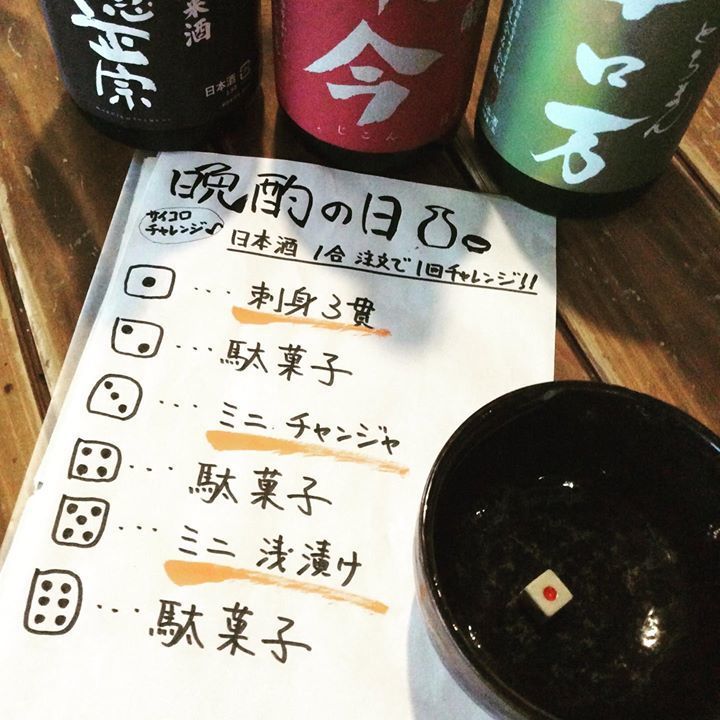 正宗
米酒
日本酒
今
じこん
口万
とろまん
晩酌の日
サイコロ
チャレンジ♪
日本酒 1合 注文で1回チャレンジ!!
... 刺身3貫
... 駄菓子
... ミニ チャンジャ
... 駄菓子
... ミニ 浅漬け
... 駄菓子